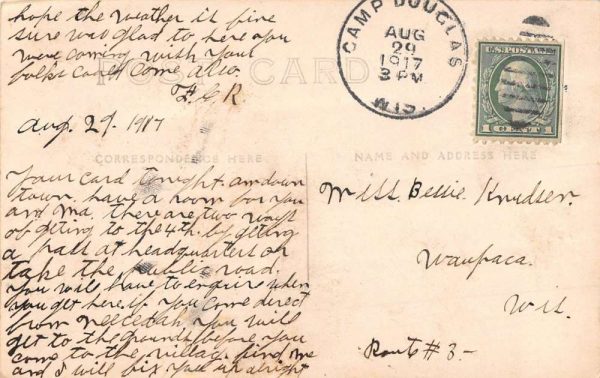 hope the weather is fine
sure was glad to here you
were coming wish your
folks could come also.
F. C. R.
POST CARD
CAMP DOUGLAS
AUG
29
1917
3 PM
WIS.
U.S. POSTAGE
1 CENT 1
Aug. 29. 1917
CORRESPONDENCE HERE
NAME AND ADDRESS HERE
Your card tonight. am down
town. have a room for you
and Ma. there are two ways
of geting to the 4th. by geting
a pass at headquarters or
take the public road.
You will have to enquire when
you get here. if you come direct
from Necedah, you will
get to the grounds before you
come to the village. find me
and I will fix you up alright
Miss. Bessie. Knudsen.
Waupaca.
Wis.
Route # 3.-